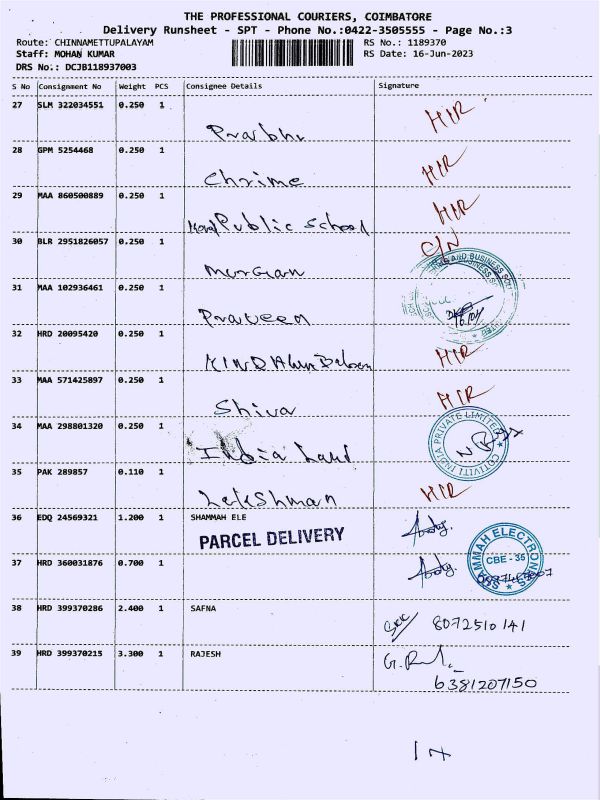 THE PROFESSIONAL COURIERS, COIMBATORE
Delivery Runsheet - SPT - Phone No.:0422-3505555 - Page No.:3
Route: CHINNAMETTUPALAYAM RS No.: 1189370
Staff: MOHAN KUMAR RS Date: 16-Jun-2023
DRS No.: DCJB118937003
S No Consignment No Weight PCS Consignee Details Signature
27 SLM 322034551 0.250 1 Prabhu HIR
28 GPM 5254468 0.250 1 Chrime HIR
29 MAA 860500889 0.250 1 Public School HIR
30 BLR 2951826057 0.250 1 Murgan C/N
31 MAA 102936461 0.250 1 Praveen
32 HRD 20095420 0.250 1 HIR
33 MAA 571425897 0.250 1 Shiva HIR
34 MAA 298801320 0.250 1 India Land
COTIVITI INDIA PRIVATE LIMITED
35 PAK 289857 0.110 1 Lekshman HIR
36 EDQ 24569321 1.200 1 SHAMMAH ELE
PARCEL DELIVERY
SHAMMAH ELECTRONICS
CBE - 35
37 HRD 360031876 0.700 1
38 HRD 399370286 2.400 1 SAFNA 8072510141
39 HRD 399370215 3.300 1 RAJESH
6381207150